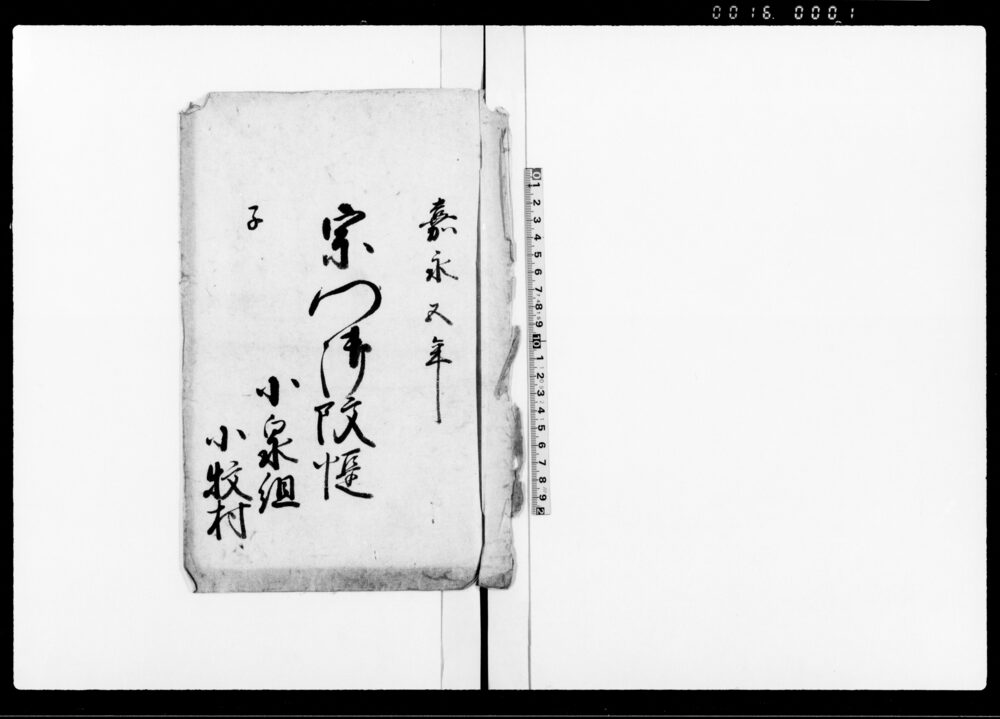 0016 0001
0 1 2 3 4 5 6 7 8 9 10 1 2 3 4 5 6 7 8 9
嘉永五年
宗門御改帳
子
小泉組
小牧村